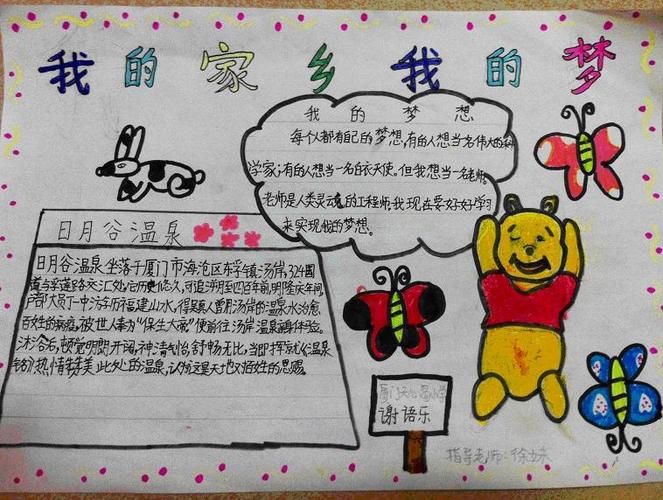 我的家乡我的梦
我的梦想
每个人都有自己的梦想,有的人想当名伟大的科
学家;有的人想当一名白衣天使。但我想当一名老师,
老师是人类灵魂的工程师,我现在要好好学习
来实现我的梦想。
日月谷温泉
日月谷温泉坐落于厦门市海沧区东孚镇汤岸,324国
道与孚莲路交汇处,历史悠久,可追溯至四百年前,明隆庆年间
户部大员丁一中游历福建山水,得莫人曾用汤岸的温泉水治愈
百姓的病痛,被世人奉为“保生大帝”便前往汤岸温泉亲身体验。
沐浴后,顿觉明朗开阔,神清气怡,舒畅无比,当即挥就《温泉
铭》,热情赞美此处的温泉,认为这是天地对百姓的恩赐
谢语乐
指导老师:徐妹